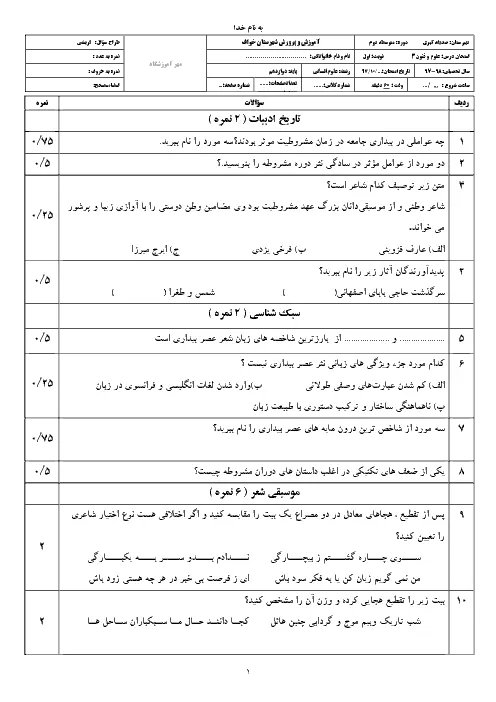 به نام خدا
دبیرستان: صدیقه کبری
دوره: متوسطه دوم
آموزش و پرورش شهرستان خواف
طراح سؤال:
امتحان درس: علوم و فنون ۳
نوبت: اول
نام و نام خانوادگی: ............................
مهر آموزشگاه
نمره به عدد :
سال تحصیلی: ۹۸-۹۷
تاریخ امتحان: ../۱۰/ ۹۷
رشته: علوم انسانی
پایه: دوازدهم
نمره به حروف :
ساعت شروع : .. / ..
وقت : ۶۰ دقیقه
شماره کلاس: ....
تعداد صفحات: ....
شماره صفحه: ..
امضاءمصحح:
ردیف
سؤالات
نمره
تاریخ ادبیات ( ۲ نمره )
۱
چه عواملی در بیداری جامعه در زمان مشروطیت موثر بودند؟سه مورد را نام ببرید.
۰/۷۵
۲
دو مورد از عوامل مؤثر در سادگی نثر دوره مشروطه را بنویسید.؟
۰/۵
۳
متن زیر توصیف کدام شاعر است؟
شاعر وطنی و از موسیقی‌دانان بزرگ عهد مشروطیت بود وی مضامین وطن دوستی را با آوازی زیبا و پرشور
می خواند.
الف) عارف قزوینی
ب) فرخی یزدی
ج) ایرج میرزا
۰/۲۵
۴
پدیدآورندگان آثار زیر را نام ببرید؟
سرگذشت حاجی بابای اصفهانی( )
شمس و طغرا ( )
۰/۵
سبک شناسی ( ۲ نمره )
۵
.................... و .................... از بارزترین شاخصه های زبان شعر عصر بیداری است
۰/۵
۶
کدام مورد جزء ویژگی های زبانی نثر عصر بیداری نیست ؟
الف) کم شدن عبارت‌های وصفی طولانی
ب)وارد شدن لغات انگلیسی و فرانسوی در زبان
پ) ناهماهنگی ساختار و ترکیب دستوری با طبیعت زبان
۰/۲۵
۷
سه مورد از شاخص ترین درون مایه های عصر بیداری را نام ببرید؟
۰/۷۵
۸
یکی از ضعف های تکنیکی در اغلب داستان های دوران مشروطه چیست؟
۰/۵
موسیقی شعر ( ۶ نمره )
۹
پس از تقطیع ، هجاهای معادل در دو مصراع یک بیت را مقایسه کنید و اگر اختلافی هست نوع اختیار شاعری
را تعیین کنید؟
سوی چاره گشتم ز بیچارگی
ندادم بدو سر به یکبارگی
من نمی گویم زیان کن یا به فکر سود باش
ای ز فرصت بی خبر در هر چه هستی زود باش
۲
۱۰
بیت زیر را تقطیع هجایی کرده و وزن آن را مشخص کنید؟
شب تاریک وبیم موج و گردابی چنین هائل
کجا دانند حال ما سبکباران ساحل ها
۲
۱